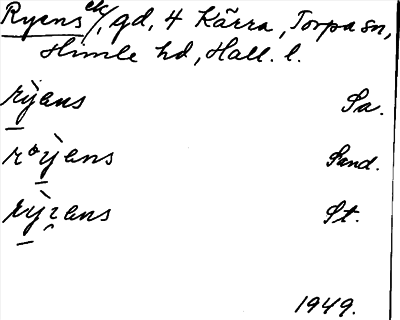 Ryens, gd, 4 Kärra, Torpa sn,
Himle hd, Hall. l.
rỳens Sa.
rỳens Sand.
rỳens St.
1949.